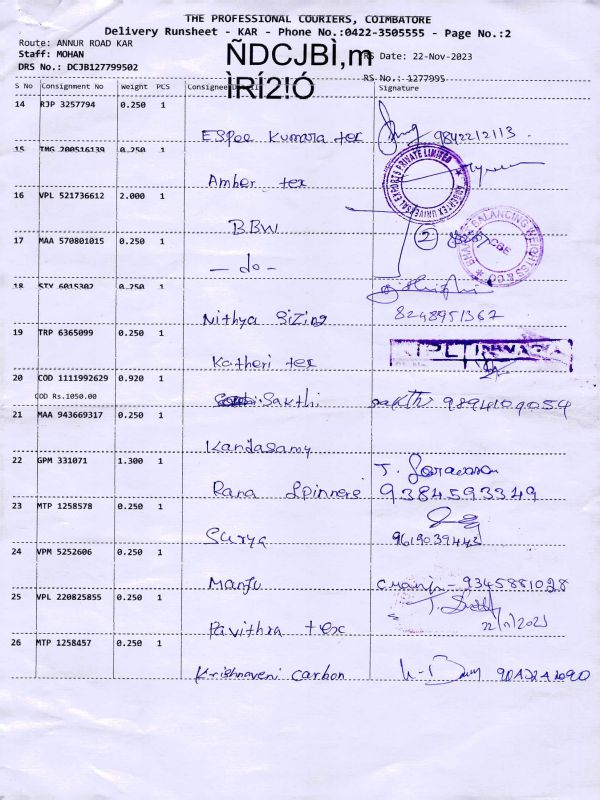 THE PROFESSIONAL COURIERS, COIMBATORE
Delivery Runsheet - KAR - Phone No.:0422-3505555 - Page No.:2
Route: ANNUR ROAD KAR
Staff: MOHAN
RS Date: 22-Nov-2023
DRS No.: DCJB127799502
ÑDCJBÌ,m
ÌRÍ2!Ó
RS No.: 1277995
S No Consignment No Weight PCS Consignee Signature
14 RJP 3257794 0.250 1
Espee Kumara tex 9842212113
15 TMG 200516139 0.250 1
Amber tex
UNIVERSAL EXPORTS PRIVATE LIMITED
16 VPL 521736612 2.000 1
BBW
17 MAA 570801015 0.250 1
- do - 2
BALANCING WEIGHTSS & CO
CBE
18 STY 6015302 0.250 1
Nithya Sizing 8248951367
19 TRP 6365099 0.250 1
Katheri tex
20 COD 1111992629 0.920 1
COD Rs.1050.00
Sakthi sakthi 9894109059
21 MAA 943669317 0.250 1
Kandasamy
22 GPM 331071 1.300 1
Rana Spinners 9384593349
23 MTP 1258578 0.250 1
Surya 9619039443
24 VPM 5252606 0.250 1
Manju 9345881028
25 VPL 220825855 0.250 1
Pavithra tex 22/11/2023
26 MTP 1258457 0.250 1
Krishnaveni Carbon